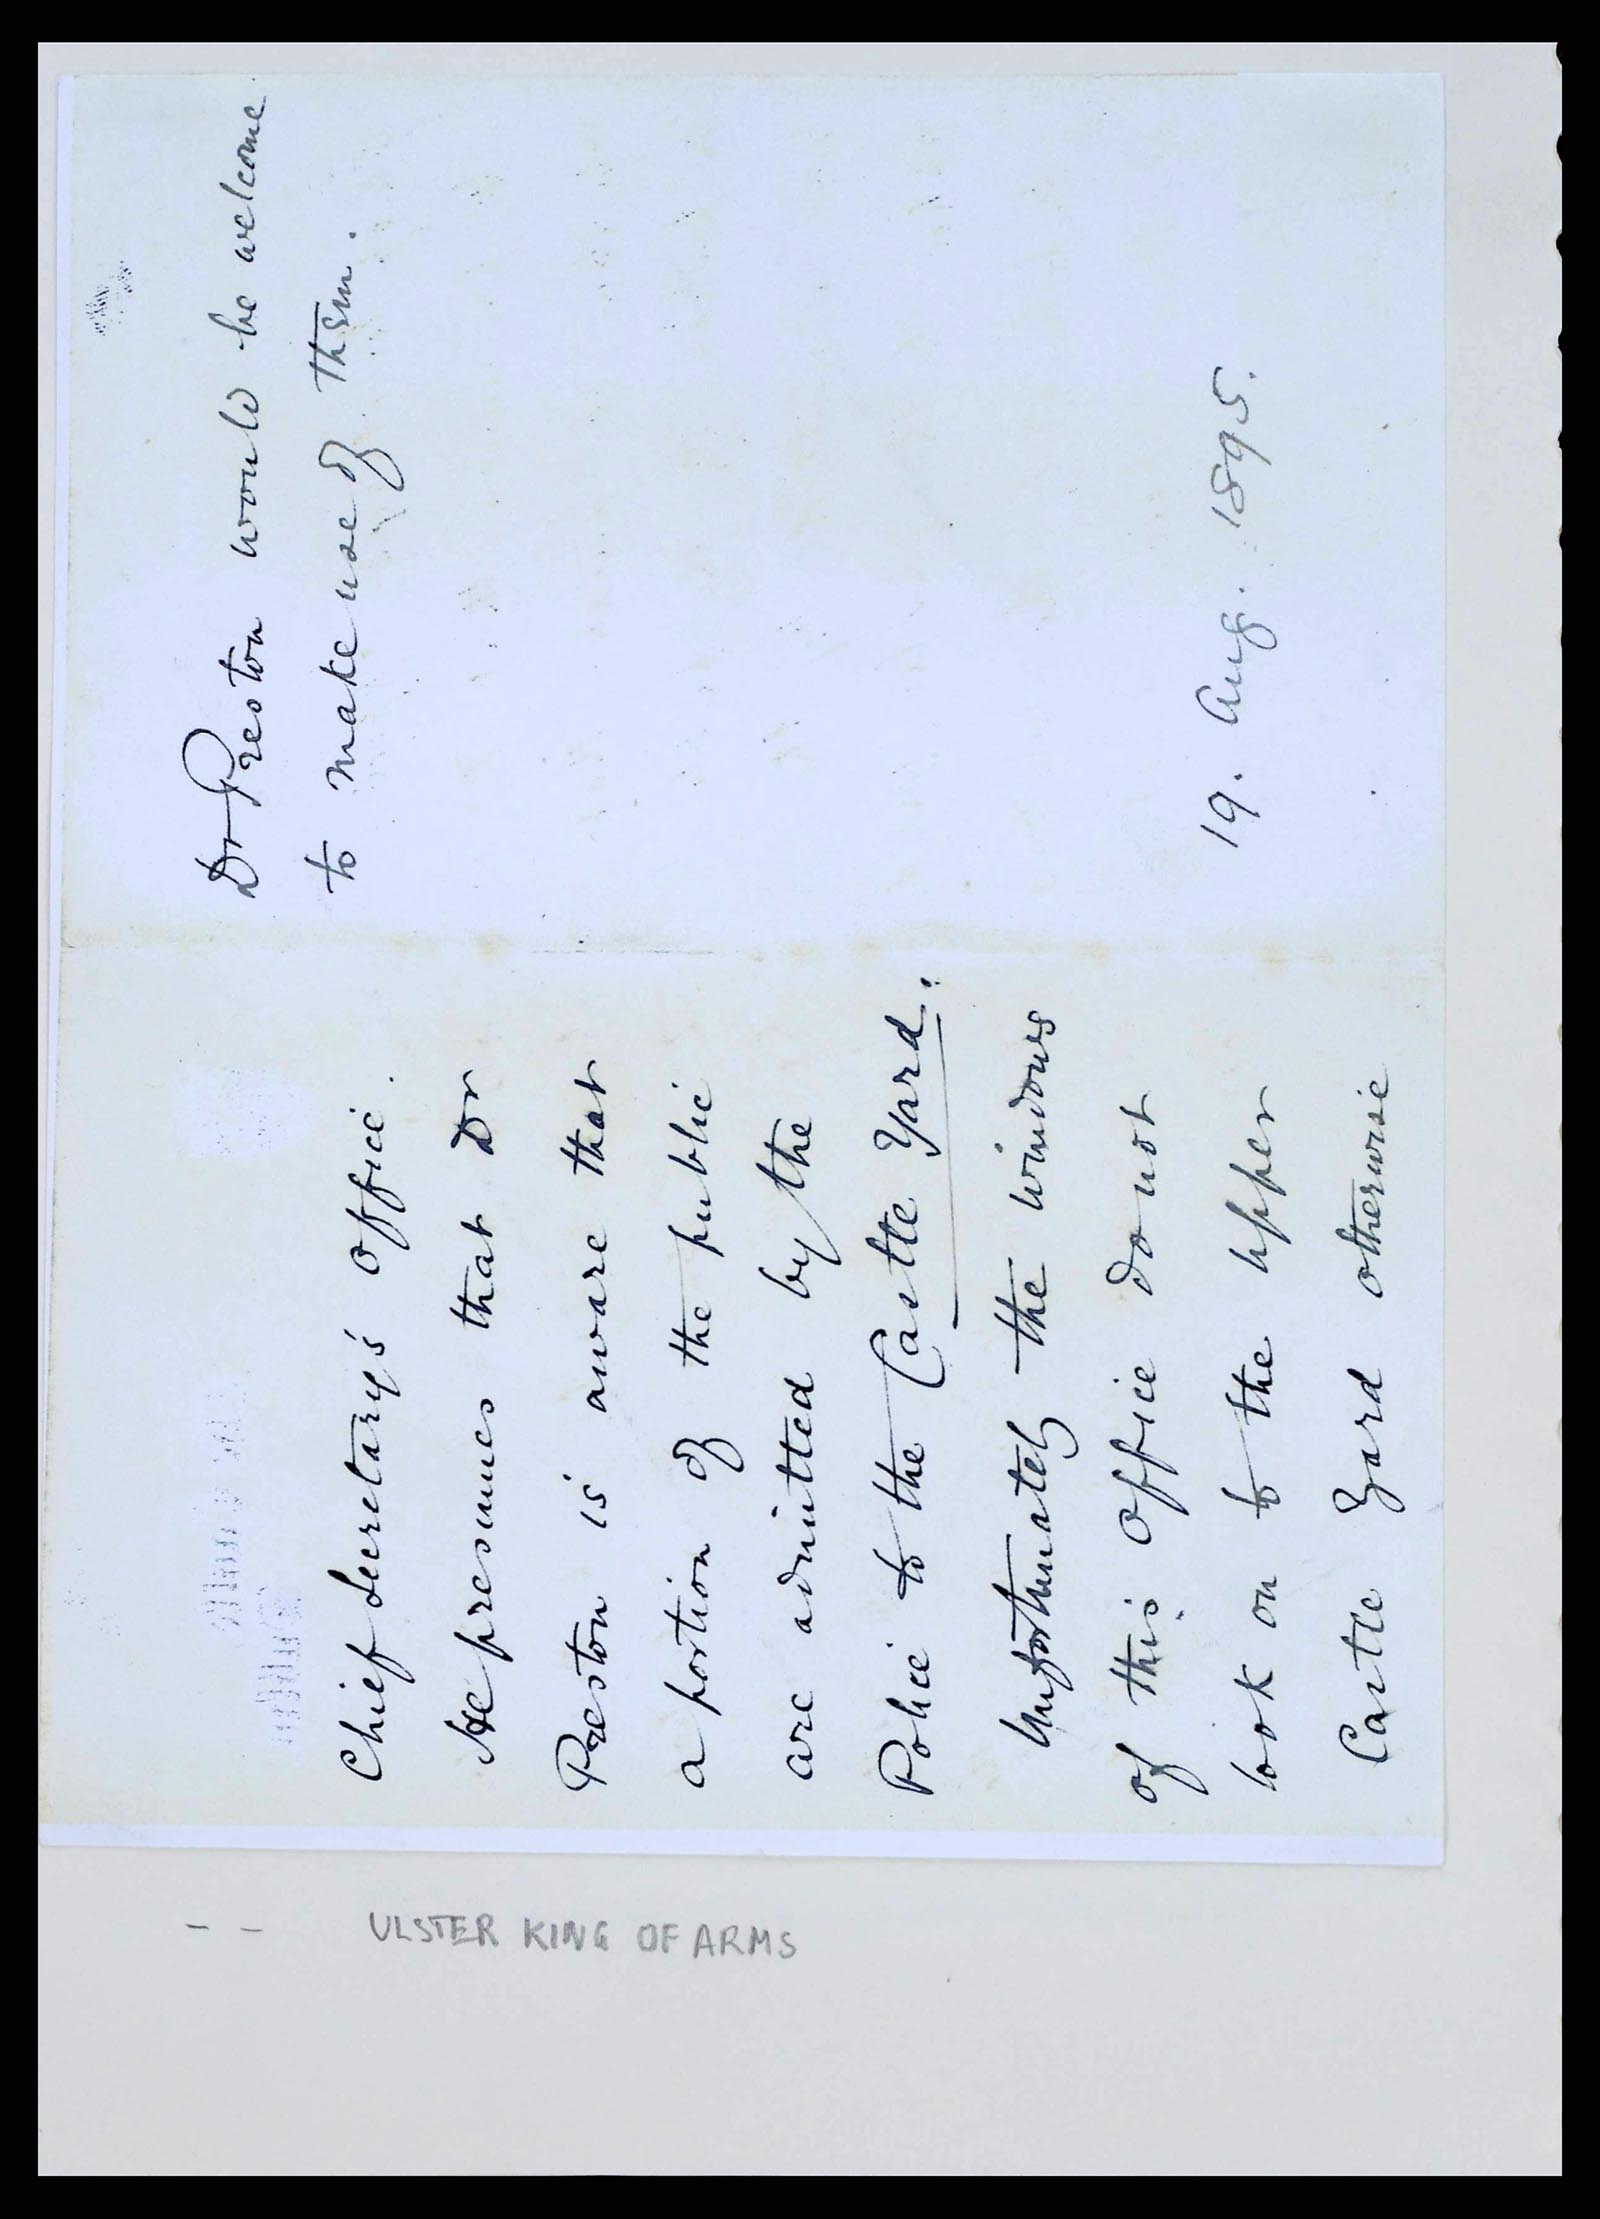 Chief Secretary's Office.
He presumes that Dr
Preston is aware that
a portion of the public
are admitted by the
Police to the Castle Yard.
Unfortunately the windows
of this Office do not
look on to the upper
Castle Yard otherwise
Dr Preston would be welcome
to make use of them.
19. Aug. 1895.
ULSTER KING OF ARMS